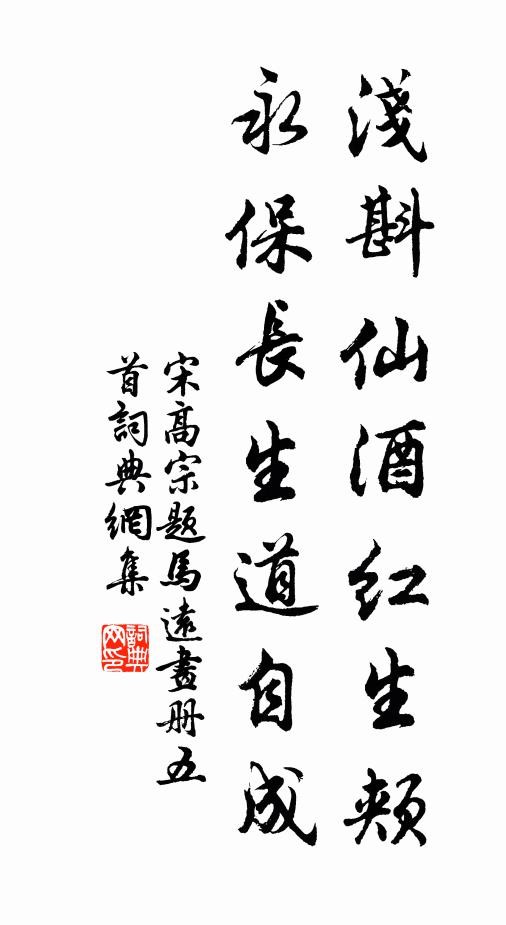 淺斟仙酒紅生頰
永保長生道自成
宋高宗題馬遠畫册五
首詞典網集
詞典
網印